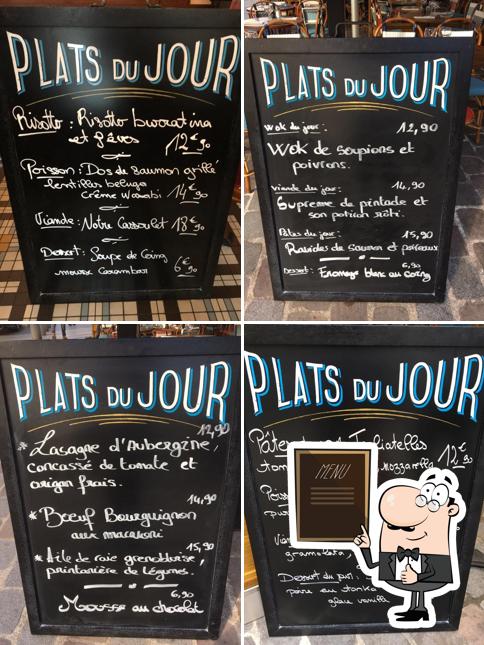 PLATS DU JOUR
Risotto : Risotto burratina
et fèves
12€90
Poisson : Dos de saumon grillé
lentilles beluga
crème Wasabi 14€90
Viande : Notre Cassoulet 18€90
Dessert : Soupe de Coing
mousse Carambar
6€90
PLATS DU JOUR
Wok du jour : 12,90
Wok de soupions et
poivrons.
Viande du jour : 14,90
Supreme de pintade et
son potiron rôti.
Pâtes du jour : 15,90
Ravioles de Saumon et poireaux
6,90
Dessert : Fromage blanc au coing
PLATS DU JOUR
12,90
* Lasagne d'Aubergine,
concassé de tomate et
origan frais.
14,90
* Bœuf Bourguignon
aux macaroni
15,90
* Aile de raie grenobloise,
printanière de légumes.
6,90
Mousse au chocolat
PLATS DU JOUR
Tagliatelles
12€
Mozzarella
MENU
gramolata
Dessert du jour :
poire au tonka
glace vanille